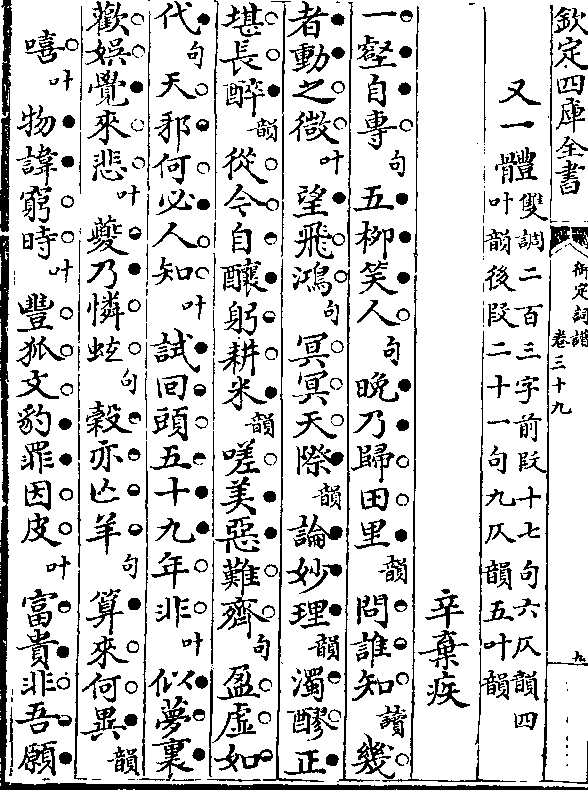 欽定四庫全書
御定詞譜
卷三十九
九
又一體
雙調二百三字前段十七句六仄韻四
叶韻後段二十一句九仄韻五叶韻
辛棄疾
一壑自專句五柳笑人句晚乃歸田里韻問誰知讀幾
者動之微叶望飛鴻句冥冥天際韻論妙理韻濁醪正
堪長醉韻從今自釀躬耕米韻嗟美惡難齊句盈虛如
代句天邪何必人知叶試回頭五十九年非叶似夢裏
歡娛覺來悲叶夔乃憐蚿句穀亦亡羊句算來何異韻
嘻叶物諱窮時叶豐狐文豹罪因皮叶富貴非吾願